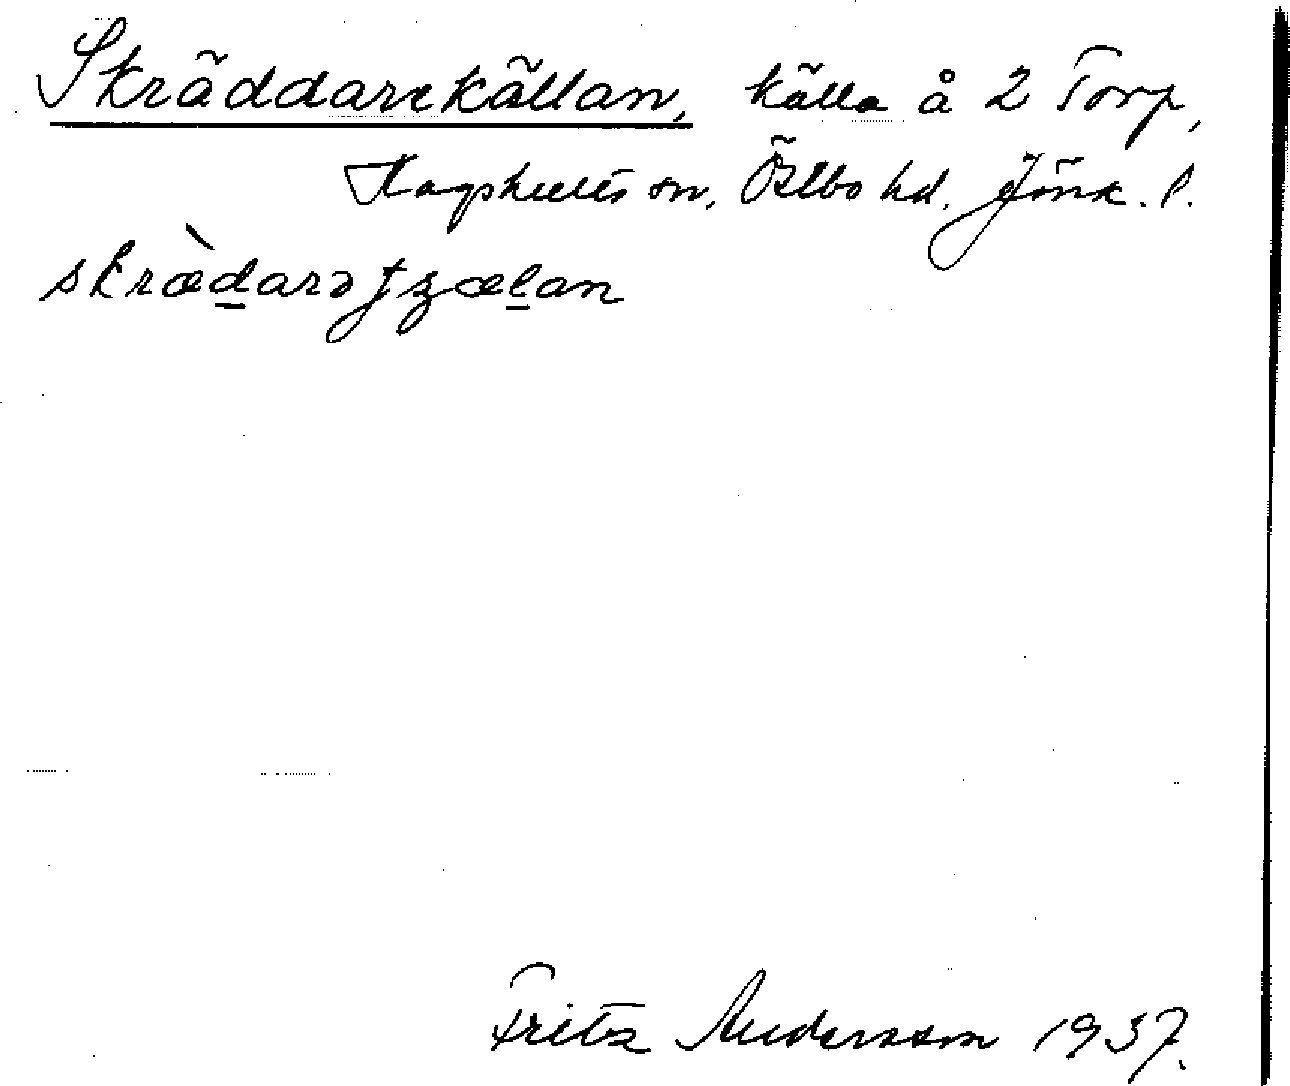 Skräddarekällan, källa å 2 Torp,
Kagshults sn, Östbo hd, Jönk. l.
skræ̀d̲arətʒæl̲an
Fritz Andersson 1937.